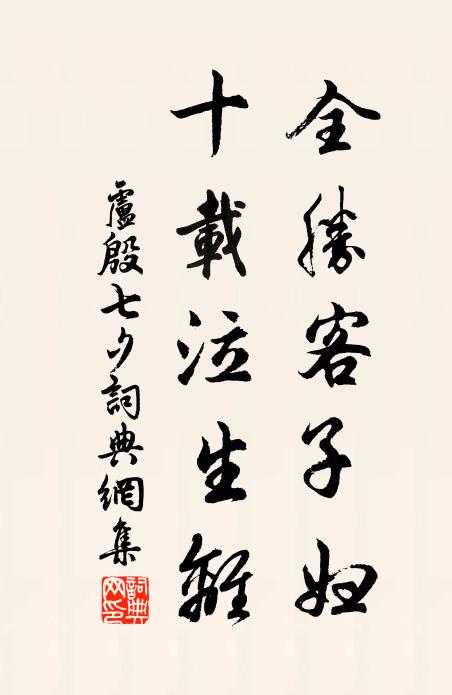 全勝客子妇
十載泣生離
盧殷七夕詞典網集
詞典網印